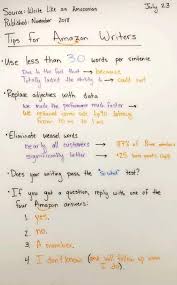 Source: Write Like an Amazonian
July 23
Published: November 2018
Tips for Amazon Writers
• Use less than 30 words per sentence
Due to the fact that → because
Totally lacked the ability to → could not
• Replace adjectives with data
We made the performance much faster →
We reduced server side tp90 latency
from 10 ms to 1 ms
• Eliminate weasel words
nearly all customers → 87% of Prime members
significantly better → +25 basis points
• Does your writing pass the "so what" test?
• If you get a question, reply with one of the
four Amazon answers:
1. yes.
2. no.
3. A number.
4 I don't know (and will follow up when
I do).